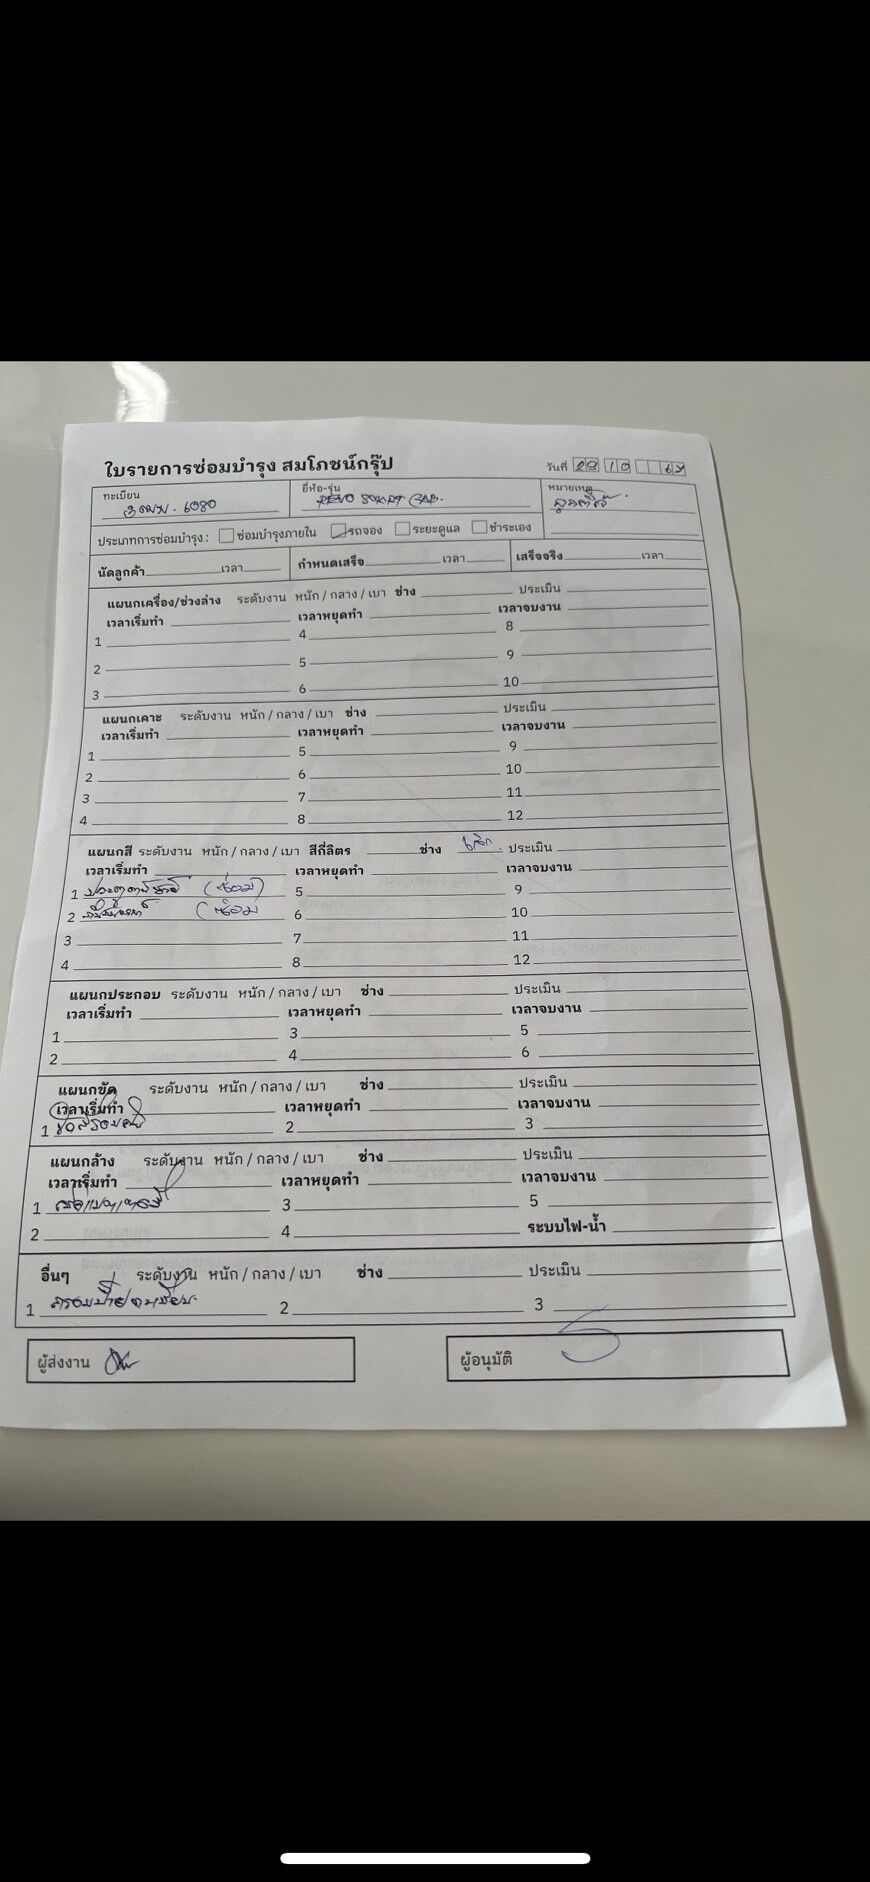 ใบรายการซ่อมบำรุง สมโภชน์กรุ๊ป
วันที่ 29 10 67
ทะเบียน 6080
ยี่ห้อ-รุ่น REVO SMART CAB.
หมายเหตุ
ประเภทการซ่อมบำรุง : ซ่อมบำรุงภายใน รถจอง ระยะดูแล ชำระเอง
นัดลูกค้า เวลา กำหนดเสร็จ เวลา เสร็จจริง เวลา
แผนกเครื่อง/ช่วงล่าง ระดับงาน หนัก / กลาง / เบา ช่าง ประเมิน
เวลาเริ่มทำ เวลาหยุดทำ เวลาจบงาน
1 4 8
2 5 9
3 6 10
แผนกเคาะ ระดับงาน หนัก / กลาง / เบา ช่าง ประเมิน
เวลาเริ่มทำ เวลาหยุดทำ เวลาจบงาน
1 5 9
2 6 10
3 7 11
4 8 12
แผนกสี ระดับงาน หนัก / กลาง / เบา สีกี่ลิตร ช่าง เล็ก ประเมิน
เวลาเริ่มทำ เวลาหยุดทำ เวลาจบงาน
1 (ซ่อม) 5 9
2 (ซ่อม) 6 10
3 7 11
4 8 12
แผนกประกอบ ระดับงาน หนัก / กลาง / เบา ช่าง ประเมิน
เวลาเริ่มทำ เวลาหยุดทำ เวลาจบงาน
1 3 5
2 4 6
แผนกขัด ระดับงาน หนัก / กลาง / เบา ช่าง ประเมิน
เวลาเริ่มทำ เวลาหยุดทำ เวลาจบงาน
1 ขัดสีรอบคัน 2 3
แผนกล้าง ระดับงาน หนัก / กลาง / เบา ช่าง ประเมิน
เวลาเริ่มทำ เวลาหยุดทำ เวลาจบงาน
1 3 5
2 4 ระบบไฟ-น้ำ
อื่นๆ ระดับงาน หนัก / กลาง / เบา ช่าง ประเมิน
1 กรอบป้ายทะเบียน 2 3
ผู้ส่งงาน ผู้อนุมัติ